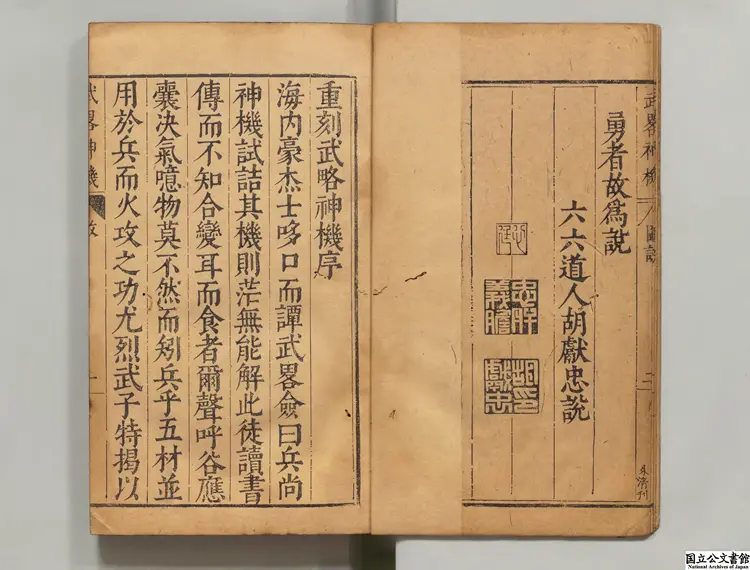 武畧神機
二
勇者故爲說
六六道人胡獻忠說
忠肝義膽
重刻武略神機序
海內豪杰士哆口而譚武畧僉曰兵尚
神機試詰其機則茫無能解此徒讀書
傳而不知合變耳而食者爾聲呼谷應
囊決氣噫物莫不然而矧兵乎五材並
用於兵而火攻之功尤烈武子特揭以
武畧神機
一
国立公文書館
National Archives of Japan